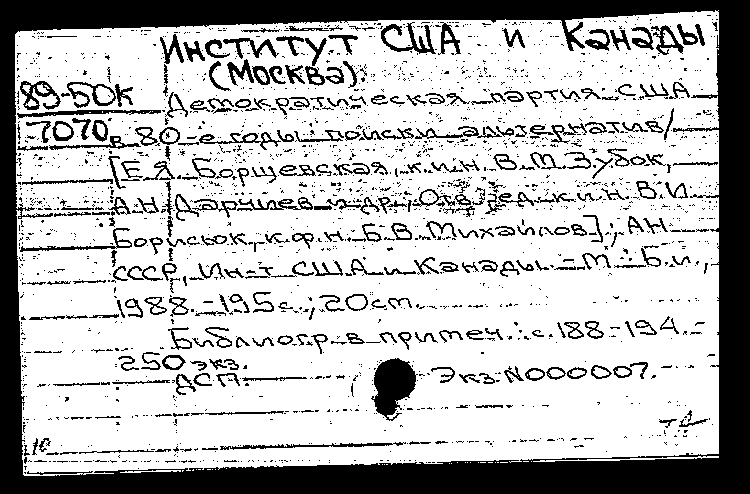 Институт США и Канады
(Москва).
89-50К Демократическая партия США
7070 в 80-е годы: поиски альтернатив/
[Е.Я. Борщевская, к.и.н. В.М. Зубок,
А.Н. Дарчиев и др.; Отв. ред. к.и.н. В.И.
Борисюк, к.ф.н. Б.В. Михайлов]; АН
СССР, Ин-т США и Канады. - М.: Б.и.,
1988. - 195 с.; 20 см.
Библиогр. в примеч.: с. 188-194. -
250 экз.
ДСП. Экз. N000007.
10